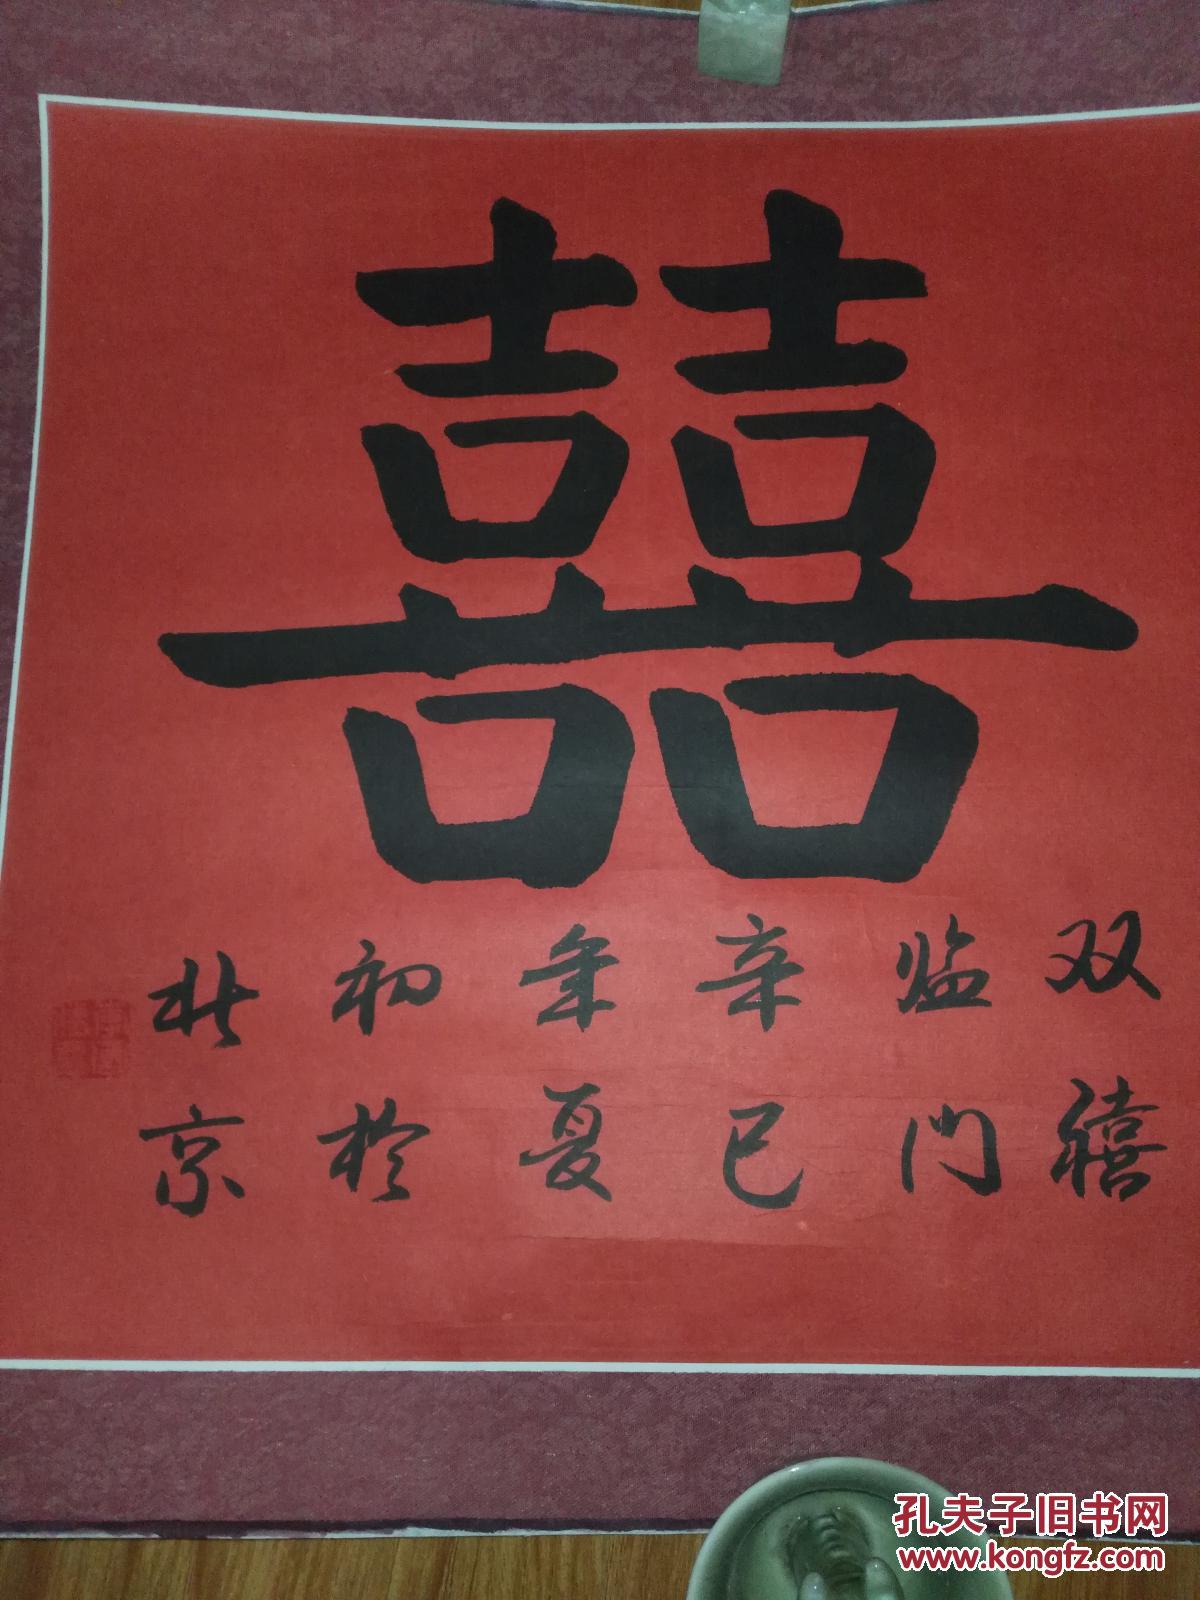 囍
双禧
临门
辛巳
年夏
初於
北京
孔夫子旧书网
www.kongfz.com